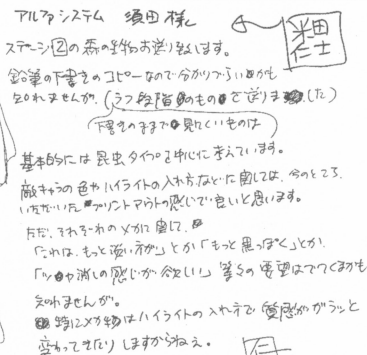 アルファシステム 須田様
ステージ2の森の敵お送り致します。
鉛筆の下書きのコピーなので分かりづらいかも
知れませんが。(ラフ段階のものを送りました)
下書きのままで見にくいものは
基本的には昆虫タイプを中心に考えています。
敵キャラの色やハイライトの入れ方などに関しては、今のところ
いただいたプリントアウトの感じで良いと思います。
ただ、それぞれのメカに関して、
「これは、もっと淡い方が」とか「もっと黒っぽく」とか
「ツヤ消しの感じが欲しい」等々の要望はでてくるかも
知れませんが。
特にメカ物はハイライトの入れ方で質感がガラッと
変わってきたりしますからねぇ。